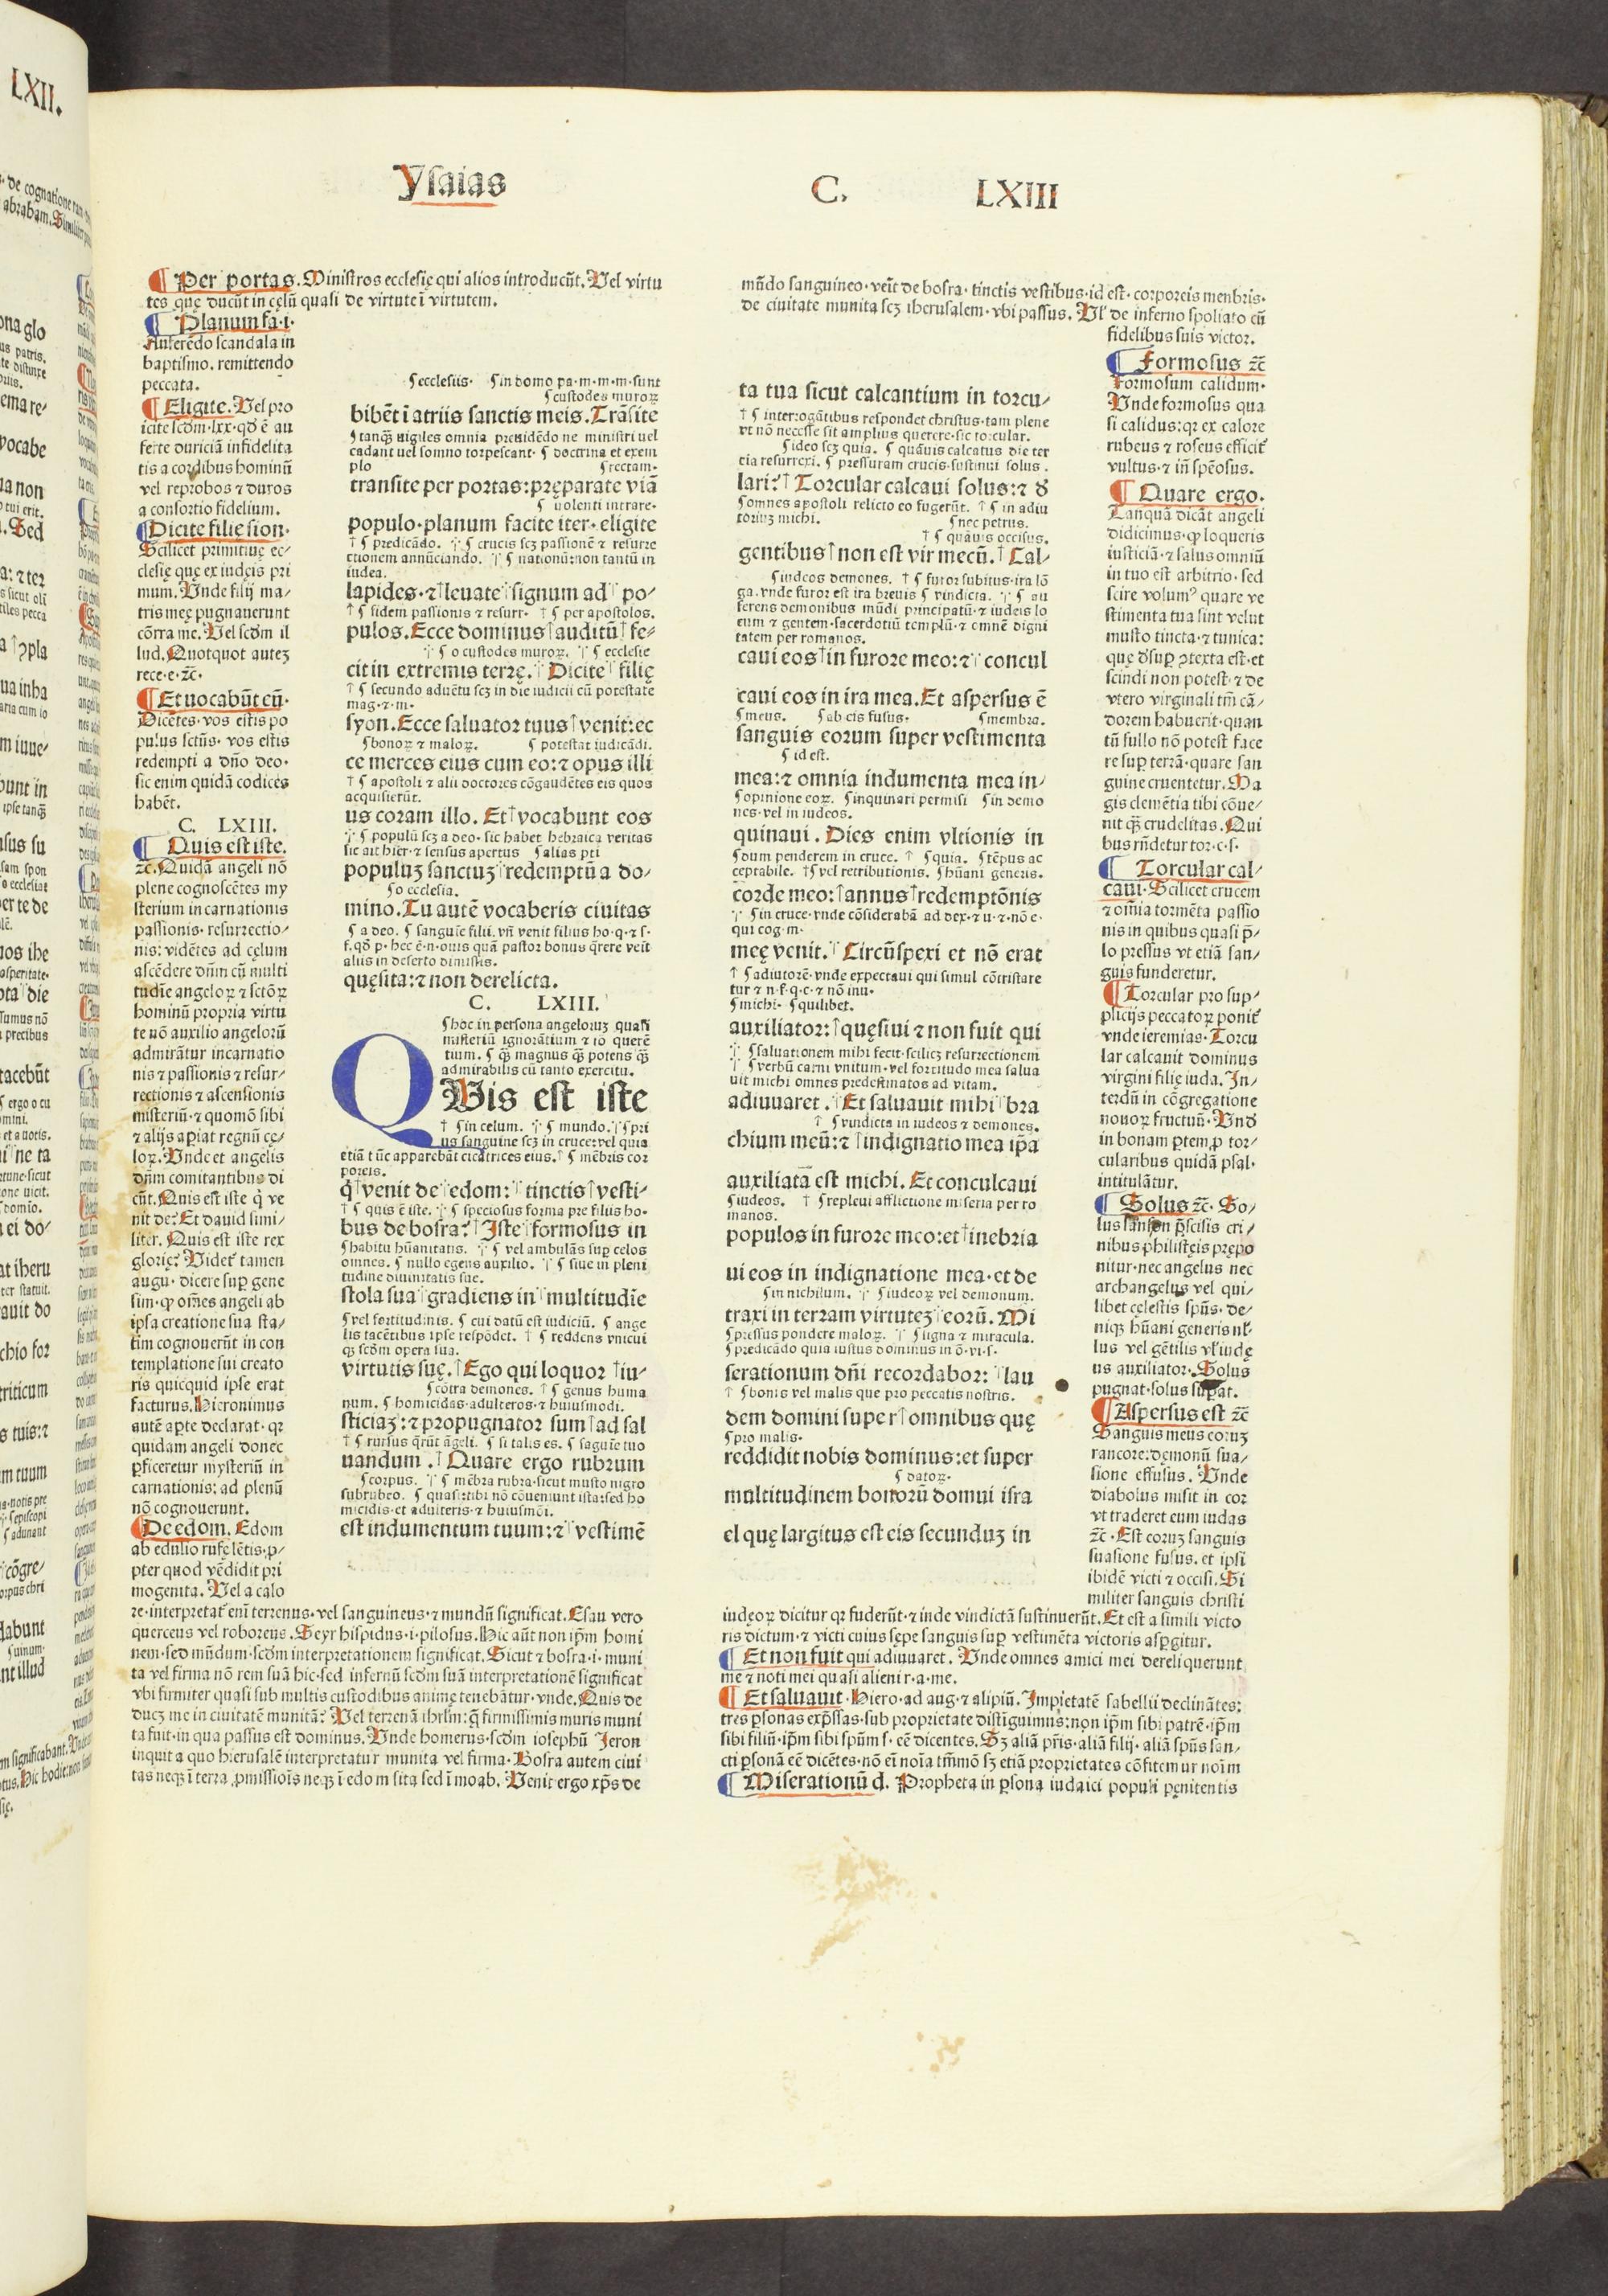 Ysaias C. LXIII
¶ Per portas. Ministros ecclesię qui alios introducūt. Vel virtu
tes quę ducūt in cęlū quasi de virtute ī virtutem.
¶ Planum fa·i·
Auferēdo scandala in
baptismo. remittendo
peccata.
¶ Eligite. Vel pro
icite scd̄m·lxx·qd̄ ē au
ferte duriciā infidelita
tis a cordibus hominū
vel reprobos ⁊ duros
a consortio fidelium.
¶ Dicite filie sion·
Scilicet primitiuę ec⸗
clesię quę ex iudęis pri
mum. Vnde filij ma⸗
tris meę pugnauerunt
cōtra me. Vel scd̄m il
lud. Quotquot autez
rece·e·ꝛc̄.
¶ Et uocabūt eū·
Dicētes· vos estis po
pulus sctūs· vos estis
redempti a dn̄o deo·
sic enim quidā codices
habēt.
C. LXIII.
¶ Quis est iste.
ꝛc̄. Quidā angeli nō
plene cognoscētes my
sterium incarnationis
passionis· resurrectio⸗
nis: vidētes ad cęlum
ascēdere dn̄m cū multi
tudīe angeloꝝ ⁊ sctōꝝ
hominū propria virtu
te nō auxilio angelorū
admirātur incarnatio
nis ⁊ passionis ⁊ resur⸗
rectionis ⁊ ascensionis
misteriū· ⁊ quomō sibi
⁊ alijs apiat regnū cę⸗
loꝝ. Vnde et angelis
dn̄m comitantibus di
cūt. Quis est iste q̄ ve
nit de: Et dauid simi⸗
liter. Quis est iste rex
glorię? Videt̄ tamen
augu· dicere suꝑ gene
sim· ꝙ om̄es angeli ab
ipsa creatione sua sta⸗
tim cognouerūt in con
templatione sui creato
ris quicquid ipse erat
facturus. Hieronimus
autē aꝑte declarat· qꝛ
quidam angeli donec
ꝑficeretur mysteriū in
carnationis: ad plenū
nō cognouerunt.
¶ De edom. Edom
ab edulio rufę lētis· ꝓ⸗
pter quod vēdidit pri
mogenita. Vel a calo
re· interpretat̄ enī terrenus· vel sanguineus· ⁊ mundū significat. Esau vero
querceus vel roboreus. Seyr hispidus·i·pilosus. Hic aūt non ip̄m homi
nem· sed mūdum· scd̄m interpretationem significat. Sicut ⁊ bosra·i·muni
ta vel firma nō rem suā hic· sed infernū scd̄m suā interpretationē significat
vbi firmiter quasi sub multis custodibus animę tenebātur· vnde. Quis de
ducꝫ me in ciuitatē munitā? Vel terrenā ihrl̄m: q̄ firmissimis muris muni
ta fuit· in qua passus est dominus. Vnde homerus· scd̄m iosephū Jeron
inquit a quo hierusalē interpretatur munita vel firma· Bosra autem ciui
tas neqꝫ ī terra ꝓmissiōis neqꝫ ī edom sita sed ī moab. Venit ergo xp̄s de
⸿ ecclesiis· ⸿ in domo pa·m·m·m·sunt
⸿ custodes muroꝝ
bibēt ī atriis sanctis meis. Trāsite
⸿ tanqꝫ uigiles omnia preuidēdo ne ministri uel
cadant uel somno torpescant· ⸿ doctrina et exem
plo ⸿ rectam·
transite per portas: pręparate viā
⸿ uolenti intrare·
populo· planum facite iter· eligite
† ⸿ predicādo. ∵ ⸿ crucis scꝫ passionē ⁊ resurre
ctionem annūciando. ∵ ⸿ nationū: non tantū in
iudea.
lapides· ⁊ leuate signum ad po⸗
† ⸿ fidem passionis ⁊ resurr· † ⸿ per apostolos.
pulos. Ecce dominus auditū fe⸗
∵ ⸿ o custodes muroꝝ. ∵ ⸿ ecclesie
cit in extremis terrę. Dicite filię
† ⸿ secundo aduētu scꝫ in die iudicii cū potestate
mag·⁊·m·
syon. Ecce saluator tuus venit: ec
⸿ bonoꝝ ⁊ maloꝝ. ⸿ potestat iudicādi.
ce merces eius cum eo: ⁊ opus illi
† ⸿ apostoli ⁊ alii doctores cōgaudētes eis quos
acquisierūt.
us coram illo. Et vocabunt eos
∵ ⸿ populū scꝫ a deo· sic habet hebraica veritas
sic ait hier· ⁊ sensus apertus ⸿ alias pti
populuꝫ sanctuꝫ redemptū a do⸗
⸿ o ecclesia.
mino. Tu autē vocaberis ciuitas
⸿ a deo. ⸿ sanguīe filii. vn̄ venit filius ho·q·⁊ s·
f. qd̄ p· hec ē·n·ouis quā pastor bonus q̄rere veīt
aliis in deserto dimissis.
quęsita: ⁊ non derelicta.
C. LXIII.
⸿ hoc in persona angeloruꝫ quasi
misteriū ignorātium ⁊ io querē
tium. ⸿ qꝫ magnus qꝫ potens qꝫ
admirabilis cū tanto exercitu.
QVis est iste
† ⸿ in celum. ∵ ⸿ mundo. ∵ ⸿ pri
us sanguine scꝫ in cruce: vel quia
etiā tūc apparebāt cicatrices eius. † ⸿ mēbris cor
poreis.
q̄ venit de edom: tinctis vesti⸗
† ⸿ quis ē iste. ∵ ⸿ speciosus forma pre filiis ho·
bus de bosra? Iste formosus in
⸿ habitu hūanitatis. ∵ ⸿ vel ambulās suꝑ celos
omnes. ⸿ nullo egens auxilio. ∵ ⸿ siue in pleni
tudine diuinitatis sue.
stola sua gradiens in multitudīe
⸿ vel fortitudinis. ⸿ cui datū est iudiciū. ⸿ ange
lis tacētibus ipse respōdet. † ⸿ reddens vnicui
qꝫ scd̄m opera sua.
virtutis suę. Ego qui loquor iu⸗
⸿ cōtra demones. † ⸿ genus huma
num. ⸿ homicidas· adulteros· ⁊ huiusmodi.
sticiaꝫ: ⁊ propugnator sum ad sal
† ⸿ rursus q̄rūt āgeli. ⸿ si talis es. ⸿ saguīe tuo
uandum. Quare ergo rubrum
⸿ corpus. ∵ ⸿ mēbra rubra· sicut musto nigro
subrubeo. ⸿ quasi: tibi nō cōueniunt ista: sed ho
micidis· et adulteris· ⁊ huiusmōi.
est indumentum tuum: ⁊ vestimē
mūdo sanguineo· veīt de bosra· tinctis vestibus· id est· corporeis menbris·
de ciuitate munita scꝫ iherusalem· vbi passus. Vl̄ de inferno spoliato cū
fidelibus suis victor.
ta tua sicut calcantium in torcu⸗
† ⸿ interrogātibus respondet christus· tam plene
vt nō necesse sit amplius querere· sic torcular.
⸿ ideo scꝫ quia. ⸿ quāuis calcatus die ter
cia resurrexi. ⸿ pressuram crucis· sustinui solus.
lari? Torcular calcaui solus: ⁊ d̄
⸿ omnes apostoli relicto eo fugerūt. † ⸿ in adiu
toriuꝫ michi. ⸿ nec petrus.
† ⸿ quāuis occisus.
gentibus non est vir mecū. Cal⸗
⸿ iudeos demones. † ⸿ furor subitus· ira lō
ga. vnde furor est ira breuis ⸿ vindicta. ∵ ⸿ au
ferens demonibus mūdi principatū· ⁊ iudeis lo
cum ⁊ gentem· sacerdotiū templū· ⁊ omnē digni
tatem per romanos.
caui eos in furore meo: ⁊ concul
caui eos in ira mea. Et aspersus ē
⸿ meus. ⸿ ab eis fusus· ⸿ membra.
sanguis eorum super vestimenta
⸿ id est.
mea: ⁊ omnia indumenta mea in⸗
⸿ opinione eoꝝ. ⸿ inquinari permisi ⸿ in demo
nes· vel in iudeos.
quinaui. Dies enim vltionis in
⸿ dum penderem in cruce. † ⸿ quia. ⸿ tēpus ac
ceptabile. † ⸿ vel retributionis. ⸿ hūani generis.
corde meo: annus redemptōnis
∵ ⸿ in cruce· vnde cōsiderabā ad dex·⁊ u·⁊·nō e·
qui cog·m·
meę venit. Circūspexi et nō erat
† ⸿ adiutorē· vnde expectaui qui simul cōtristare
tur ⁊ n·f·q·c·⁊ nō inu·
⸿ michi· ⸿ quilibet.
auxiliator: quęsiui ⁊ non fuit qui
∵ ⸿ saluationem mihi fecit· scilicꝫ resurrectionem
† ⸿ verbū carni vnitum· vel fortitudo mea salua
uit michi omnes predestinatos ad vitam.
adiuuaret. Et saluauit mihi bra
† ⸿ vindicta in iudeos ⁊ demones.
chium meū: ⁊ indignatio mea ip̄a
auxiliata est michi. Et conculcaui
⸿ iudeos. † ⸿ repleui afflictione miseria per ro
manos.
populos in furore meo: et inebria
ui eos in indignatione mea· et de
⸿ in nichilum. ∵ ⸿ iudeoꝝ vel demonum.
traxi in terram virtutez eorū. Mi
⸿ pressus pondere maloꝝ. ∵ ⸿ signa ⁊ miracula.
⸿ predicādo quia iustus dominus in ō·vi·s·
serationum dn̄i recordabor: lau
† ⸿ bonis vel malis que pro peccatis nostris.
dem domini super omnibus quę
⸿ pro malis·
reddidit nobis dominus: et super
⸿ datoꝝ·
multitudinem bonorū domui isra
el quę largitus est eis secunduꝫ in
¶ Formosus ꝛc̄
Formosum calidum·
Vnde formosus qua
si calidus: qꝛ ex calore
rubeus ⁊ roseus efficit̄
vultus· ⁊ in̄ spēosus.
¶ Quare ergo.
Tanquā dicāt angeli
didicimus· ꝙ loqueris
iusticiā· ⁊ salus omniū
in tuo est arbitrio· sed
scire volumꝰ quare ve
stimenta tua sint velut
musto tincta· ⁊ tunica:
quę d̄suꝑ ꝯtexta est· et
scindi non potest· ⁊ de
vtero virginali tm̄ cā⸗
dorem habuerit· quan
tū fullo nō potest face
re suꝑ terrā· quare san
guine cruentetur. Ma
gis clemētia tibi cōue⸗
nit qꝫ crudelitas. Qui
bus rn̄detur tor·c·s·
¶ Torcular cal⸗
caui· Scilicet crucem
⁊ om̄ia tormēta passio
nis in quibus quasi p̄⸗
lo pressus vt etiā san⸗
guis funderetur.
¶ Torcular pro sup⸗
plicijs peccatoꝝ ponit̄
vnde ieremias· Torcu
lar calcauit dominus
virgini filię iuda. In⸗
terdū in cōgregatione
nouoꝝ fructuū. Vnd̄
in bonam ꝑtem· ꝓ tor⸗
cularibus quidā psal·
intitulātur.
¶ Solus ꝛc̄. So⸗
lus p̄scisis cri⸗
nibus philistęis prępo
nitur· nec angelus nec
archangelus vel qui⸗
libet cęlestis sp̄us· de⸗
niqꝫ hūani generis nl̄·
lus vel gētilis vl̄ iudę
us auxiliator. Solus
pugnat· solus suꝑat.
¶ Aspersus est ꝛc̄
Sanguis meus eoruꝫ
rancore: demonū sua⸗
sione effusus. Vnde
diabolus misit in cor
vt traderet eum iudas
ꝛc̄. Est eoruꝫ sanguis
suasione fusus. et ipsi
ibidē victi ⁊ occisi. Si
militer sanguis christi
iudęoꝝ dicitur qꝛ fuderūt· ⁊ inde vindictā sustinuerūt. Et est a simili victo
ris dictum· ⁊ victi cuius sępe sanguis suꝑ vestimēta victoris asꝑgitur.
¶ Et non fuit qui adiuuaret. Vnde omnes amici mei dereliquerunt
me ⁊ noti mei quasi alieni r·a·me.
¶ Et saluauit· Hiero·ad aug·⁊ alipiū. Impietatē sabellii declinātes:
tres ꝑsonas exp̄ssas· sub proprietate distīguimus: non ip̄m sibi patrē· ip̄m
sibi filiū· ip̄m sibi spūm s· eē dicentes. Sꝫ aliā pr̄is· aliā filij· aliā spūs san⸗
cti ꝑsonā eē dicētes· nō eī noīa tm̄mō sꝫ etiā proprietates cōfitemur noīm
¶ Miserationū d. Propheta in ꝑsona iudaici populi pęnitentis